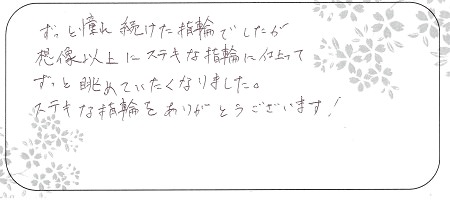 ずっと憧れ続けた指輪でしたが
想像以上にステキな指輪に仕上って
ずっと眺めていたくなりました。
ステキな指輪をありがとうございます!